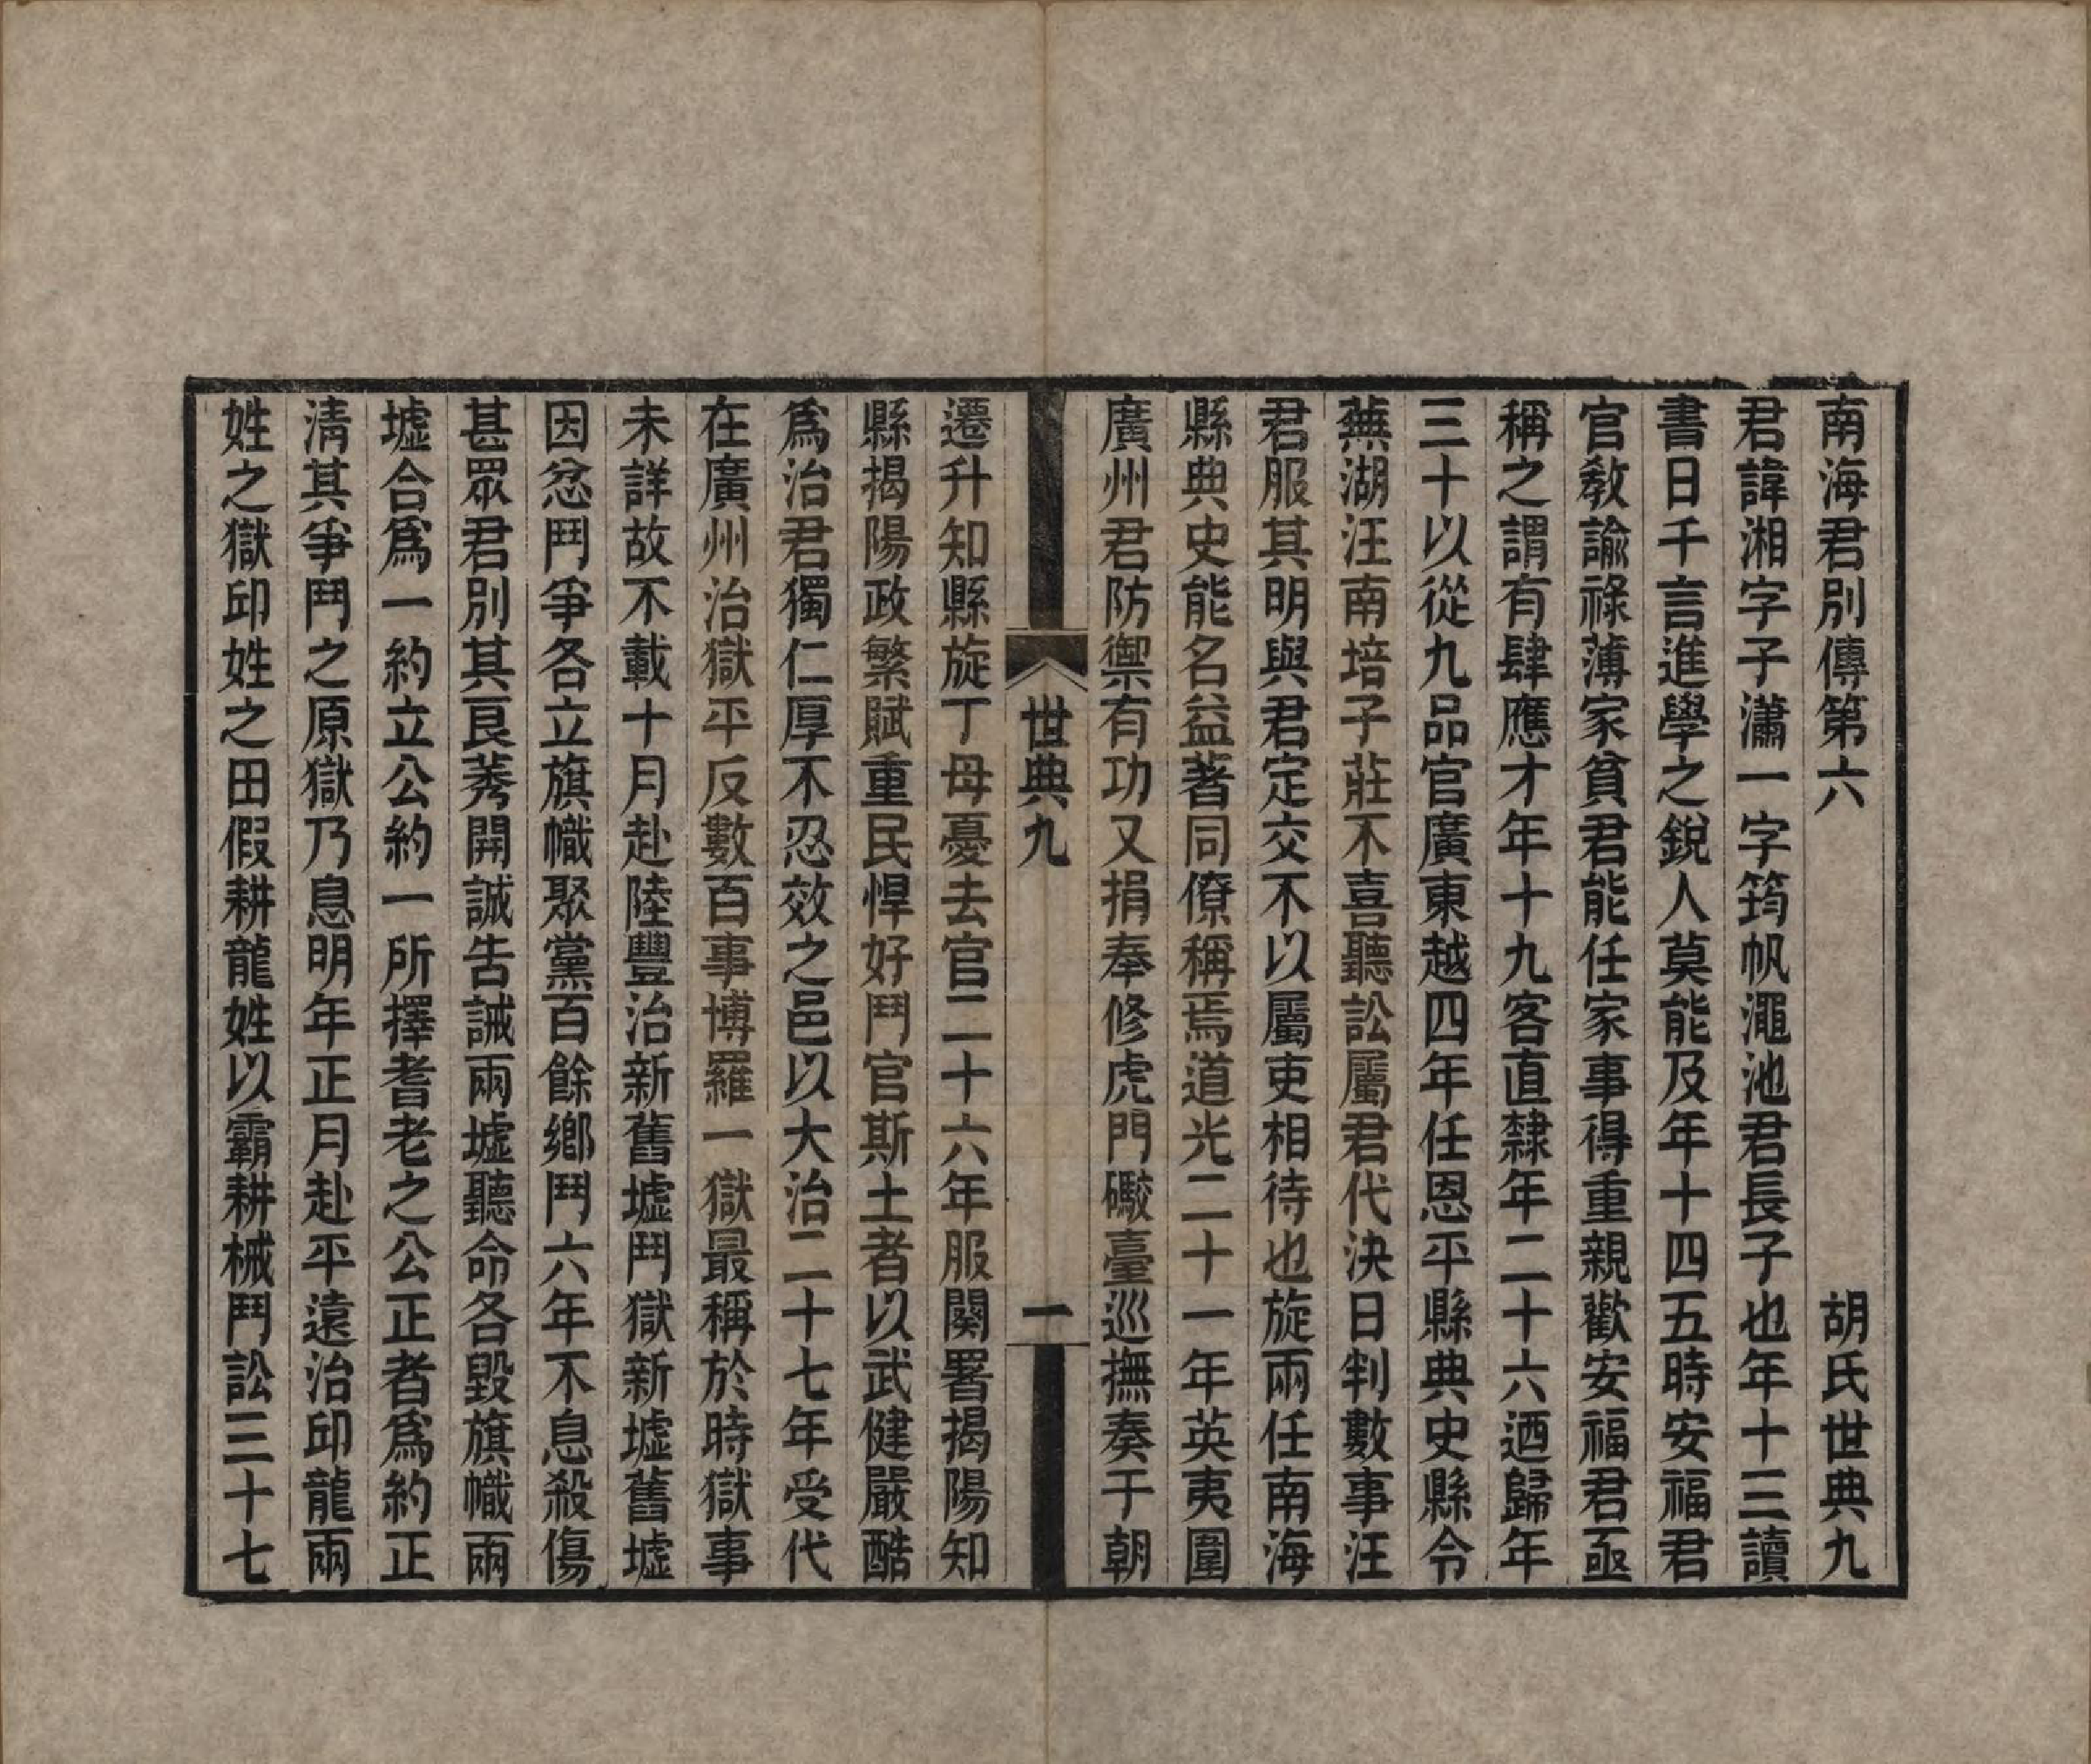 南海君別傳第六　胡氏世典九
君諱湘字子瀟一字筠帆澠池君長子也年十三讀
書日千言進學之銳人莫能及年十四五時安福君
官敎諭祿薄家貧君能任家事得重親歡安福君亟
稱之謂有肆應才年十九客直隸年二十六迺歸年
三十以從九品官廣東越四年任恩平縣典史縣令
蕪湖汪南培子莊不喜聽訟屬君代決日判數事汪
君服其明與君定交不以屬吏相待也旋兩任南海
縣典史能名益著同僚稱焉道光二十一年英夷圍
廣州君防禦有功又捐奉修虎門礮臺巡撫奏于朝
世典九　一
遷升知縣旋丁母憂去官二十六年服闋署揭陽知
縣揭陽政繁賦重民悍好鬥官斯土者以武健嚴酷
爲治君獨仁厚不忍效之邑以大治二十七年受代
在廣州治獄平反數百事博羅一獄最稱於時獄事
未詳故不載十月赴陸豐治新舊墟鬥獄新墟舊墟
因忿鬥爭各立旗幟聚黨百餘鄉鬥六年不息殺傷
甚眾君別其良莠開誠告誡兩墟聽命各毀旗幟兩
墟合爲一約立公約一所擇耆老之公正者爲約正
淸其爭鬥之原獄乃息明年正月赴平遠治邱龍兩
姓之獄邱姓之田假耕龍姓以霸耕械鬥訟三十七